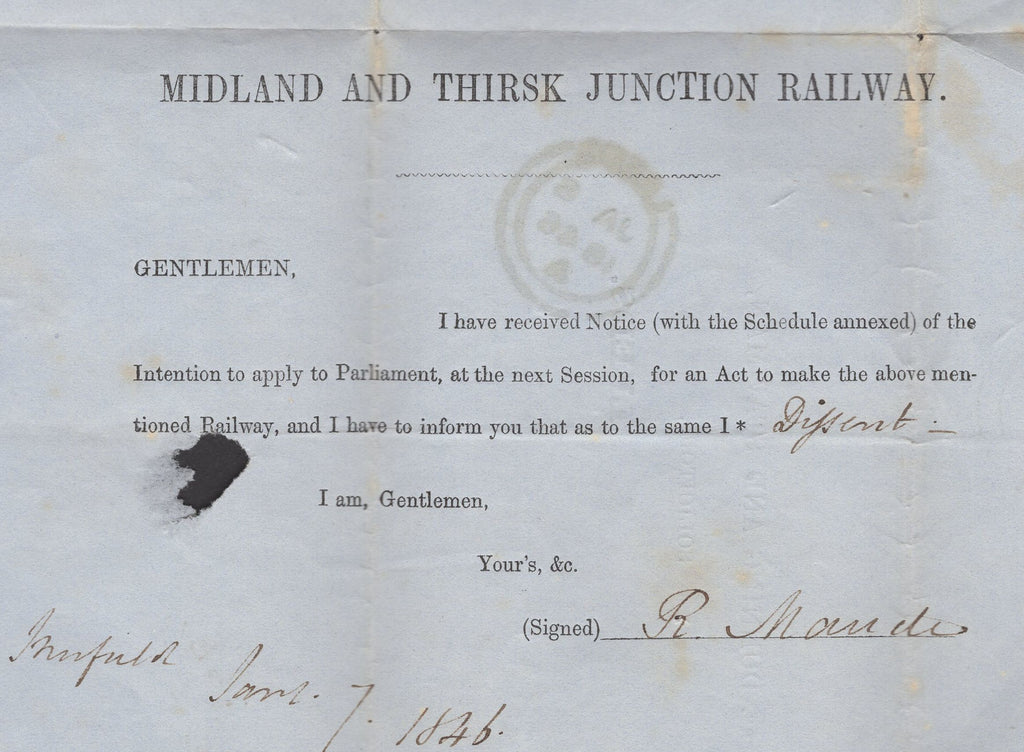 MIDLAND AND THIRSK JUNCTION RAILWAY.
GENTLEMEN,
I have received Notice (with the Schedule annexed) of the
Intention to apply to Parliament, at the next Session, for an Act to make the above men-
tioned Railway, and I have to inform you that as to the same I * Dissent –
I am, Gentlemen,
Your's, &c.
(Signed) R. Maude
Jany. 7. 1846.